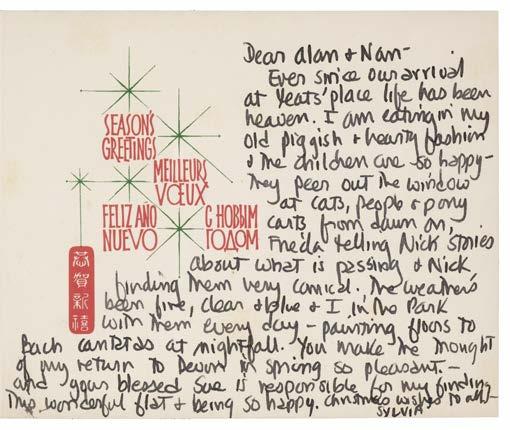 SEASON'S
GREETINGS
MEILLEURS
VŒUX
FELIZ AÑO
NUEVO
С НОВЫМ
ГОДОМ
恭賀新禧
Dear Alan & Nan-
Ever since our arrival
at Yeats' place life has been
heaven. I am eating in my
old piggish & hearty fashion
& the children are so happy-
they peer out the window
at cats, people & pony
carts from dawn on,
Frieda telling Nick stories
about what is passing & Nick
finding them very comical. The weather's
been fine, clear & blue & I in the Park
with them every day - painting floors to
Bach cantatas at nightfall. You make the thought
of my return to Devon in spring so pleasant.-
and your blessed Sue is responsible for my finding
this wonderful flat & being so happy. Christmas wishes to all-
SYLVIA